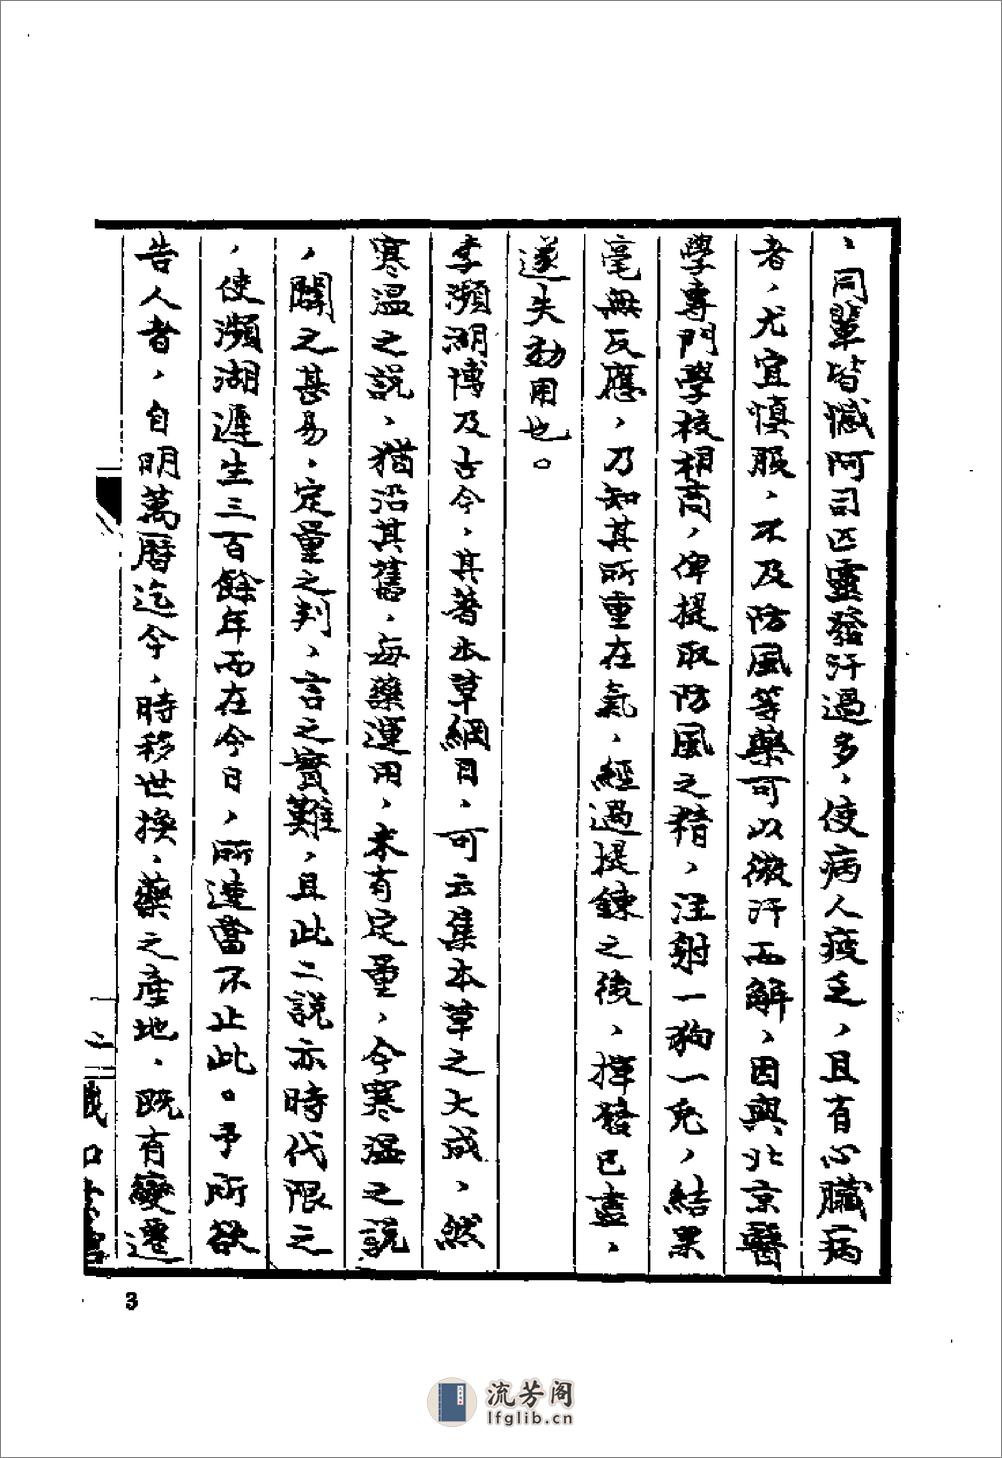 ，同輩皆憾阿司匹靈發汗過多，使病人疲乏，且有心臟病
者，尤宜慎服，不及防風等藥可以微汗而解，因與北京醫
學專門學校相商，俾提取防風之精，注射一狗一兔，結果
毫無反應，乃知其所重在氣，經過提鍊之後，揮發已盡，
遂失効用也。
李瀕湖博及古今，其著本草綱目，可云集本草之大成，然
寒溫之說，猶沿其舊，每藥運用，未有定量，今寒溫之說
，闢之甚易，定量之判，言之實難，且此二說亦時代限之
，使瀕湖遲生三百餘年而在今日，所達當不止此。予所欲
告人者，自明萬曆迄今，時移世換，藥之產地，既有變遷
二
3
流芳阁
lfglib.cn